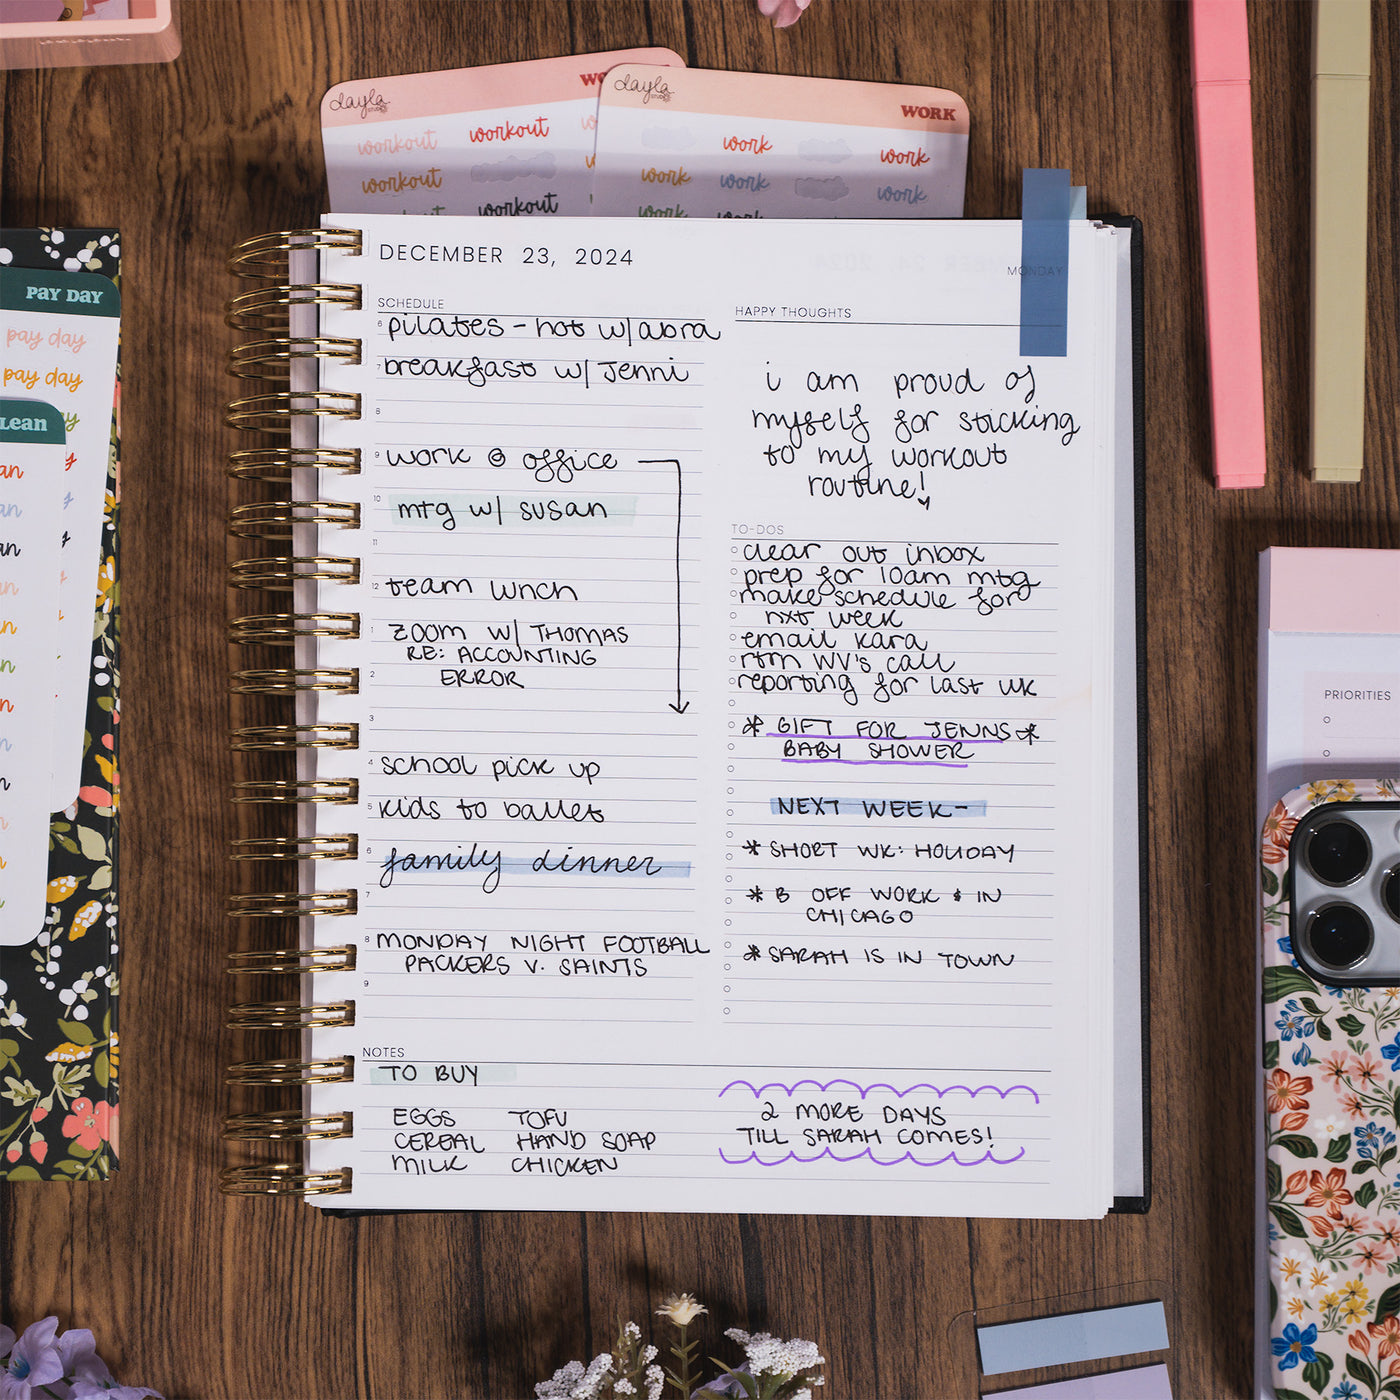 dayla
STUDIO
WORK
workout
workout
workout
workout
dayla
STUDIO
WORK
work
work
work
work
work
work
work
PAY DAY
pay day
pay day
LEAN
DECEMBER 23, 2024
MONDAY
SCHEDULE
6 pilates - hot w/ abra
7 breakfast w/ Jenni
8
9 work @ office
10 mtg w/ susan
11
12 team lunch
1 ZOOM W/ THOMAS
RE: ACCOUNTING
2 ERROR
3
4 school pick up
5 kids to ballet
6 family dinner
7
8 MONDAY NIGHT FOOTBALL
PACKERS V. SAINTS
9
HAPPY THOUGHTS
i am proud of
myself for sticking
to my workout
routine!
TO-DOS
clear out inbox
prep for 10am mtg
make schedule for
nxt week
email kara
rtrn WV's call
reporting for last wk
* GIFT FOR JENNS *
BABY SHOWER
NEXT WEEK-
* SHORT WK: HOLIDAY
* B OFF WORK & IN
CHICAGO
* SARAH IS IN TOWN
NOTES
TO BUY
EGGS TOFU
CEREAL HAND SOAP
MILK CHICKEN
2 MORE DAYS
TILL SARAH COMES!
PRIORITIES